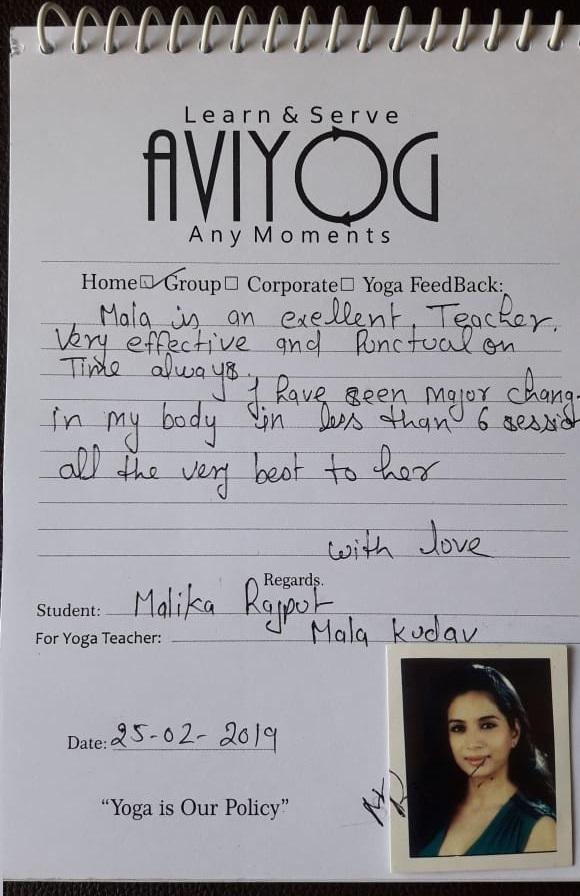 Learn & Serve
AVIYOG
Any Moments
Home☑ Group☐ Corporate☐ Yoga FeedBack:
Mala is an exellent Teacher.
Very effective and Punctual on
Time always.
I have seen major chang
in my body in less than 6 sessio
all the very best to her
with love
Regards.
Student: Malika Rajput
For Yoga Teacher: Mala Kudav
Date: 25-02-2019
“Yoga is Our Policy”